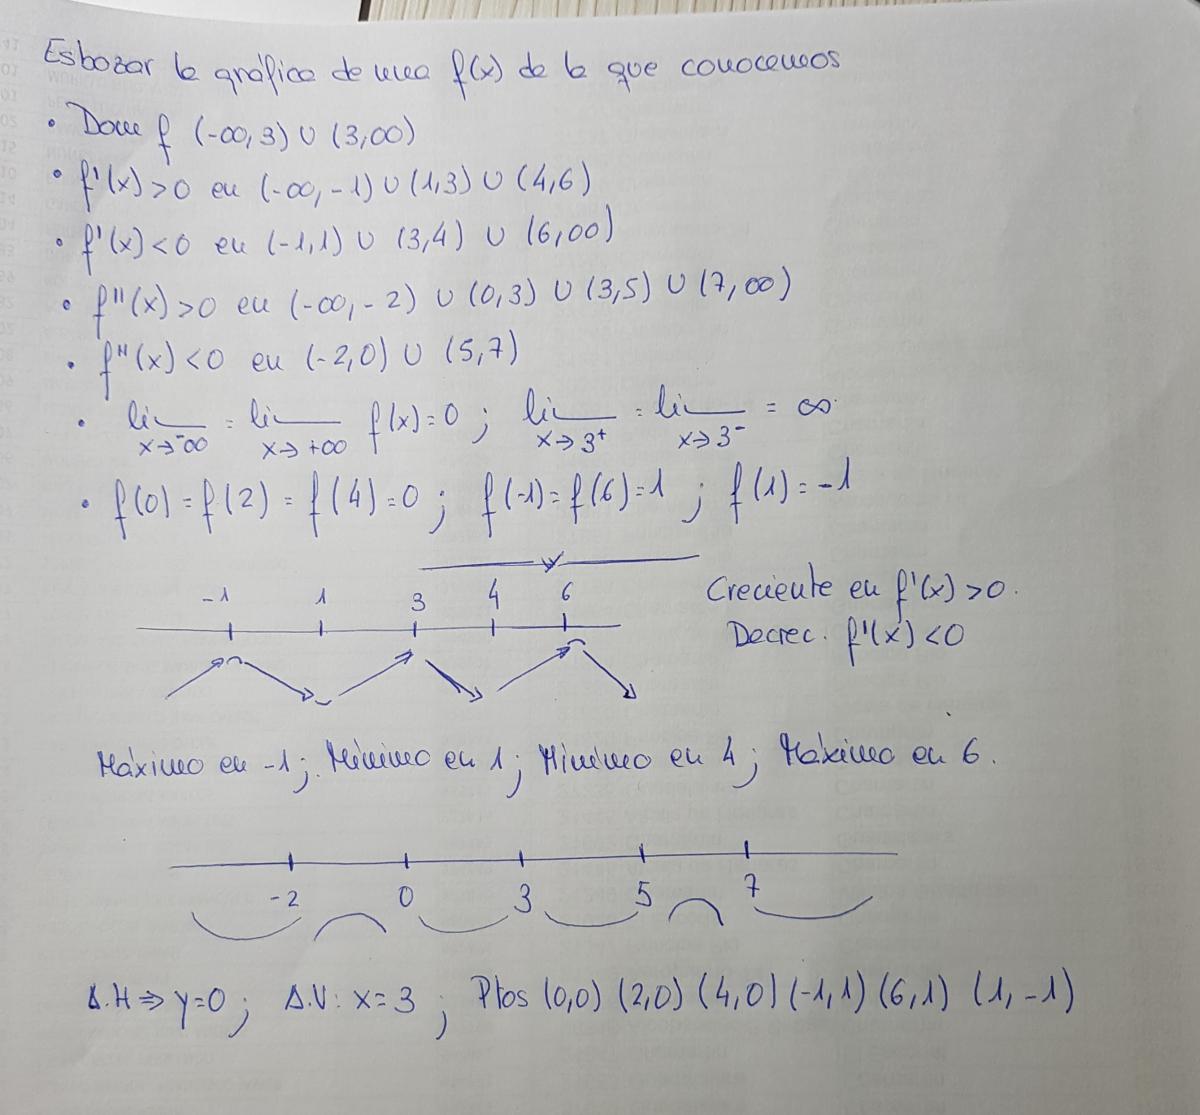 Esbozar la gráfica de una f(x) de la que conocemos
• Dom f (-∞, 3) ∪ (3, ∞)
• f'(x) > 0 en (-∞, -1) ∪ (1,3) ∪ (4,6)
• f'(x) < 0 en (-1,1) ∪ (3,4) ∪ (6,∞)
• f''(x) > 0 en (-∞, -2) ∪ (0,3) ∪ (3,5) ∪ (7,∞)
• f''(x) < 0 en (-2,0) ∪ (5,7)
• lim x→-∞ = lim x→+∞ f(x) = 0 ; lim x→3⁺ = lim x→3⁻ = ∞
• f(0) = f(2) = f(4) = 0 ; f(-1) = f(6) = 1 ; f(1) = -1
-1 1 3 4 6 Creciente en f'(x) > 0.
Decrec. f'(x) < 0
Máximo en -1 ; Mínimo en 1 ; Mínimo en 4 ; Máximo en 6.
-2 0 3 5 7
A.H ⇒ y=0 ; A.V: x=3 ; Ptos (0,0) (2,0) (4,0) (-1,1) (6,1) (1,-1)